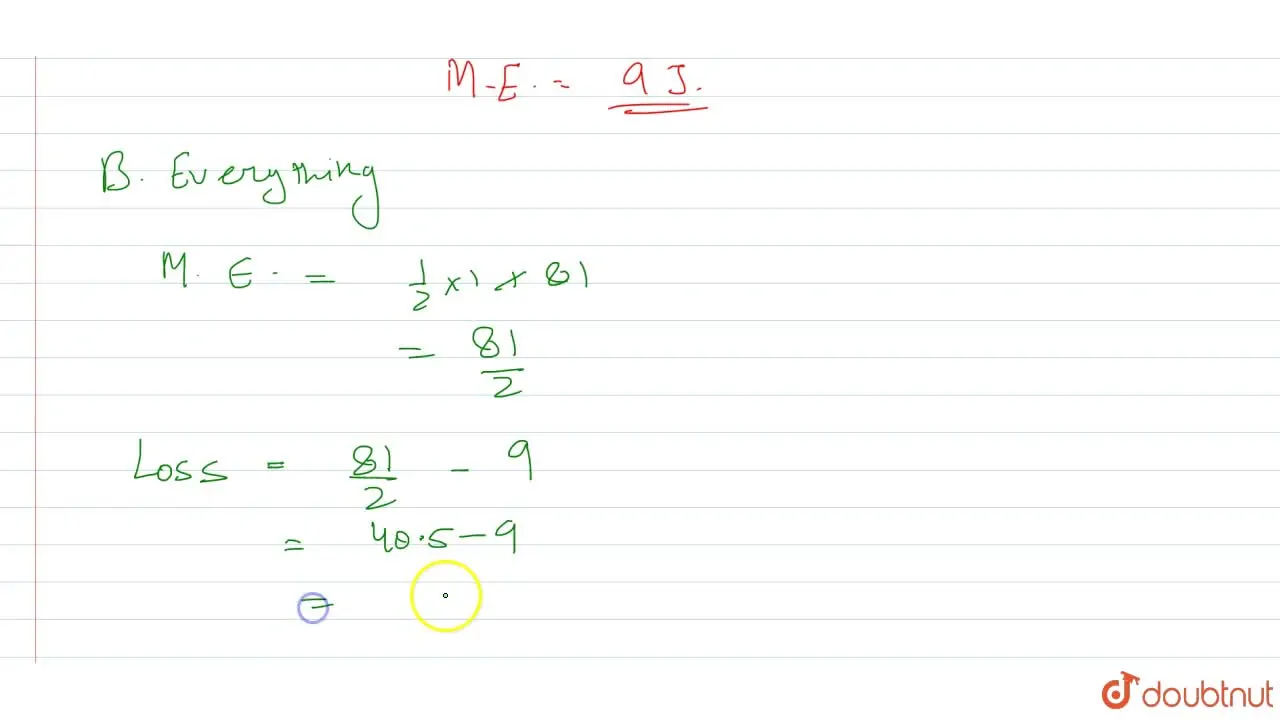 M.E. = 9 J.
B. Everything
M. E. = 1/2 × 1 × 81
= 81/2
Loss = 81/2 - 9
= 40.5 - 9
=
doubtnut